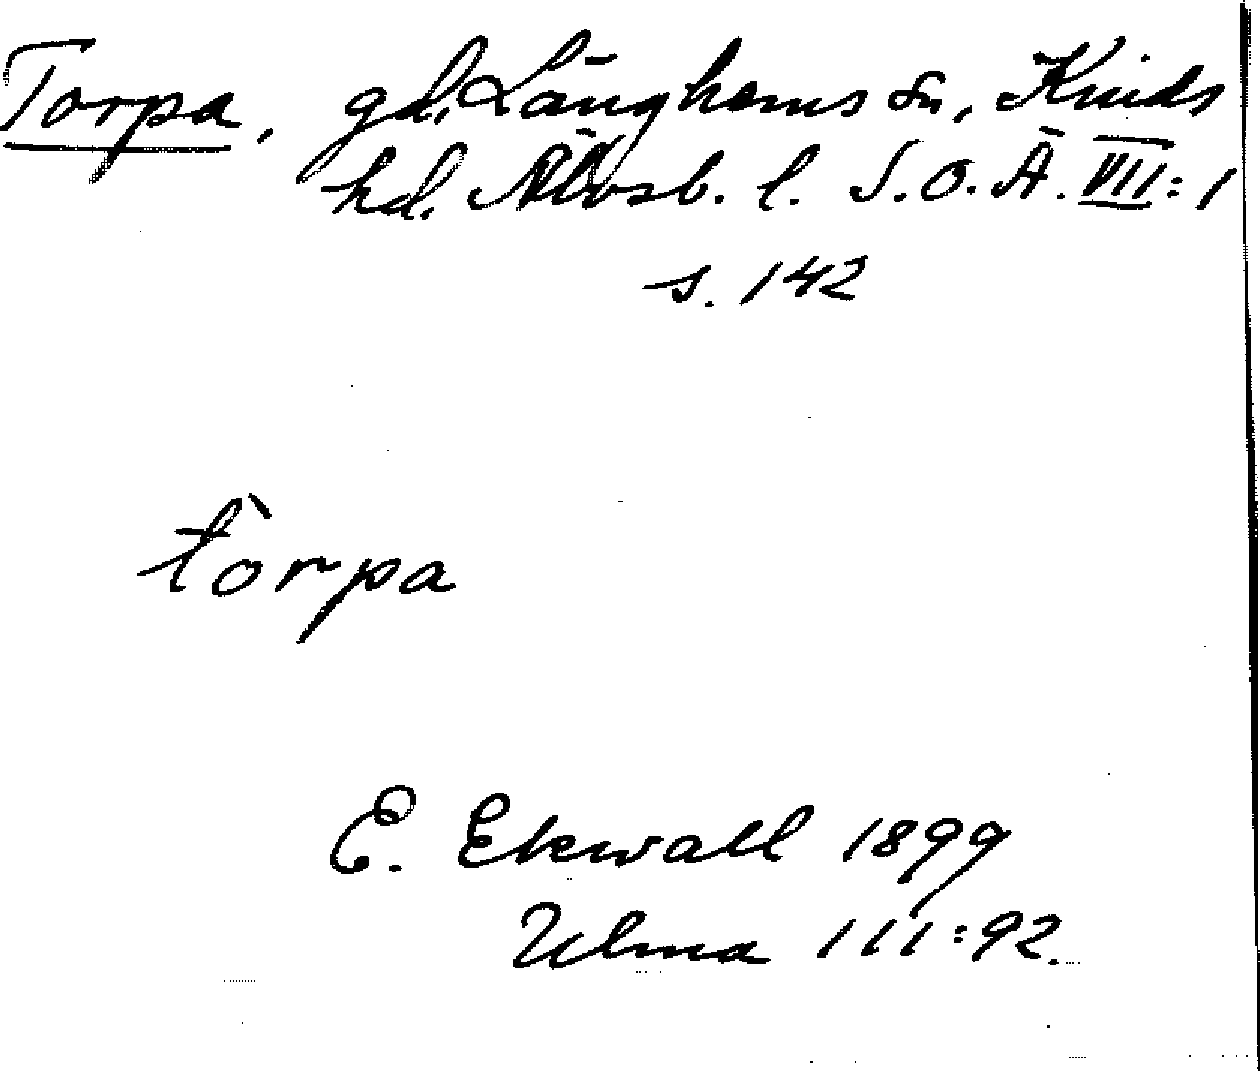 Torpa, gd, Länghems sn, Kinds
hd. Älvsb. l. S. O. Ä. VII: 1
s. 142
tòrpa
E. Ekwall 1899
Ulma 111:92.